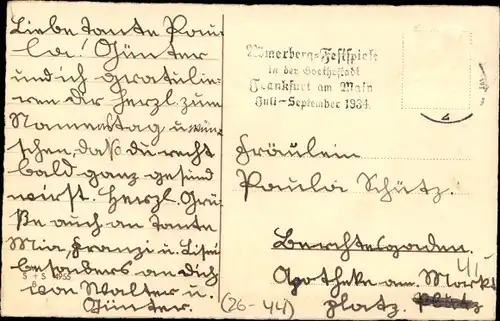 Liebe Tante Pau-
la! Günter
und ich gratulie-
ren Dir herzl. zum
Namenstag u. wün-
schen, dass du recht
bald ganz gesund
wirst. Herzl. Grü-
ße auch an Tante
Mia, Franzi u. Lise
besonders an dich
von Walter u.
Günter.
S + S 1955
Römerberg-Festspiele
in der Goethestadt
Frankfurt am Main
Juli-September 1934
Fräulein
Paula Schütz.
Berchtesgaden.
Apotheke am Markt
platz.
(26-44)
41